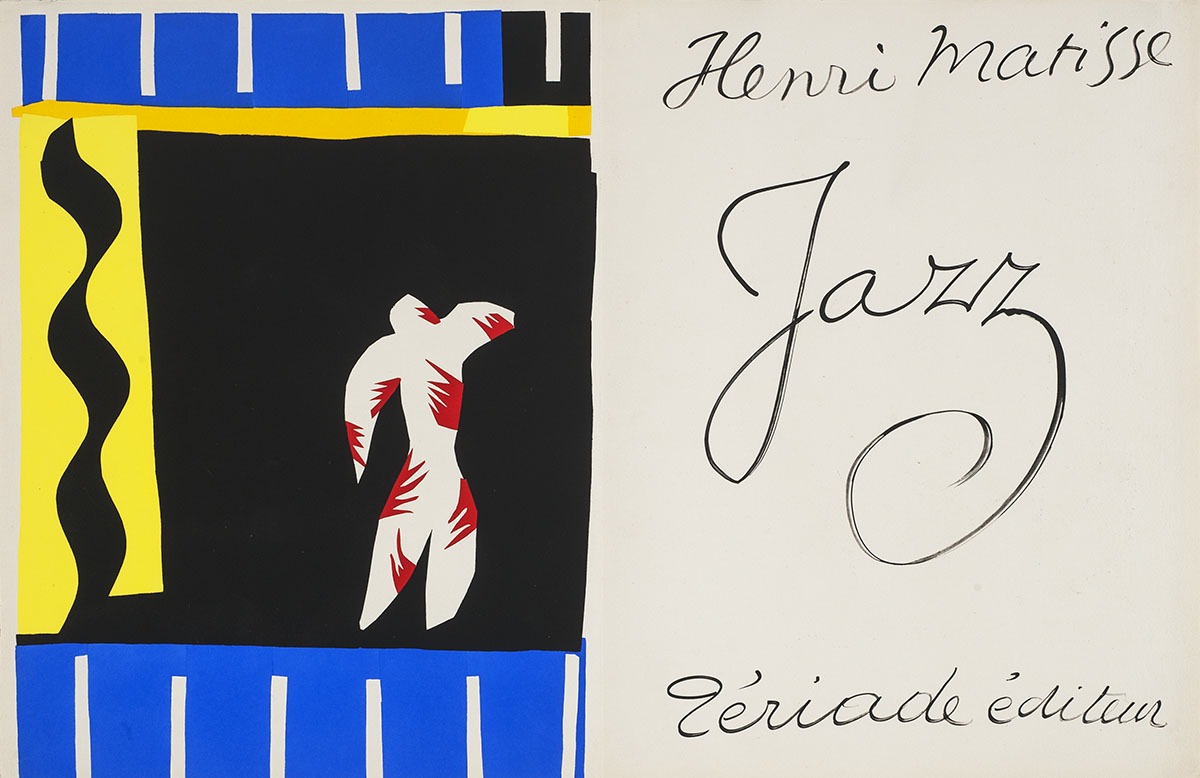 Henri Matisse
Jazz
Tériade éditeur